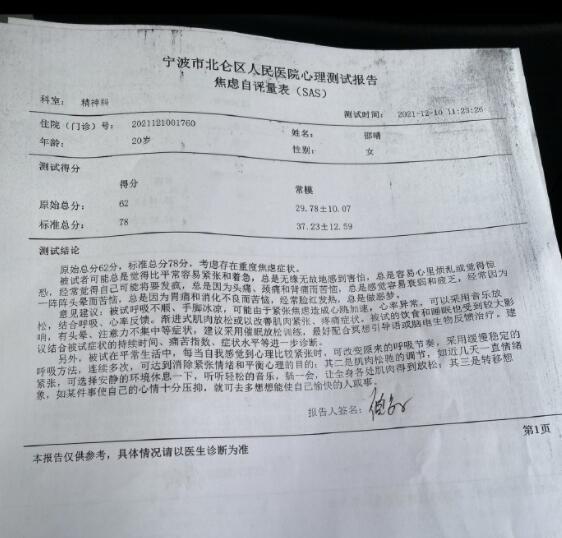 宁波市北仑区人民医院心理测试报告
焦虑自评量表（SAS）
科室： 精神科
测试时间： 2021-12-10 11:23:26
住院（门诊）号： 2021121001760
姓名： 邵晴
年龄： 20岁
性别： 女
测试得分
得分 常模
原始总分： 62 29.78±10.07
标准总分： 78 37.23±12.59
测试结论
原始总分62分，标准总分78分．考虑存在重度焦虑症状。
被试者可能总是觉得比平常容易紧张和着急，总是无缘无故地感到害怕，总是容易心里烦乱或觉得惊
恐，经常觉得自己可能将要发疯，总是因为头痛、颈痛和背痛而苦恼，总是感觉容易衰弱和疲乏，经常因为
一阵阵头晕而苦恼，总是因为胃痛和消化不良而苦恼，经常脸红发热，总是做恶梦。
意见建议：被试呼吸不顺、手脚冰凉，可能由于紧张焦虑造成心跳加速，心率异常，可以采用音乐放
松，结合呼吸、心率反馈。渐进式肌肉放松或以改善肌肉紧张、疼痛症状。被试的饮食和睡眠也受到较大影
响，有头晕、注意力不集中等症状，建议采用催眠放松训练，最好配合冥想引导语或脑电生物反馈治疗。建
议结合被试症状的持续时间、痛苦指数、症状水平等进一步诊断。
另外，被试在平常生活中，每当自我感觉到心理比较紧张时，可改变原来的呼吸节奏，采用缓慢稳定的
呼吸方法，连续多次，可达到消除紧张情绪和平衡心理的目的；其二是肌肉松弛的调节，如近几天一直情绪
紧张，可选择安静的环境休息一下，听听轻松的音乐，躺一会，让全身各处肌肉得到放松；其三是转移想
象，如某件事使自己的心情十分压抑，就可去多想想能使自己愉快的人或事．
报告人签名：
第1页
本报告仅供参考，具体情况请以医生诊断为准